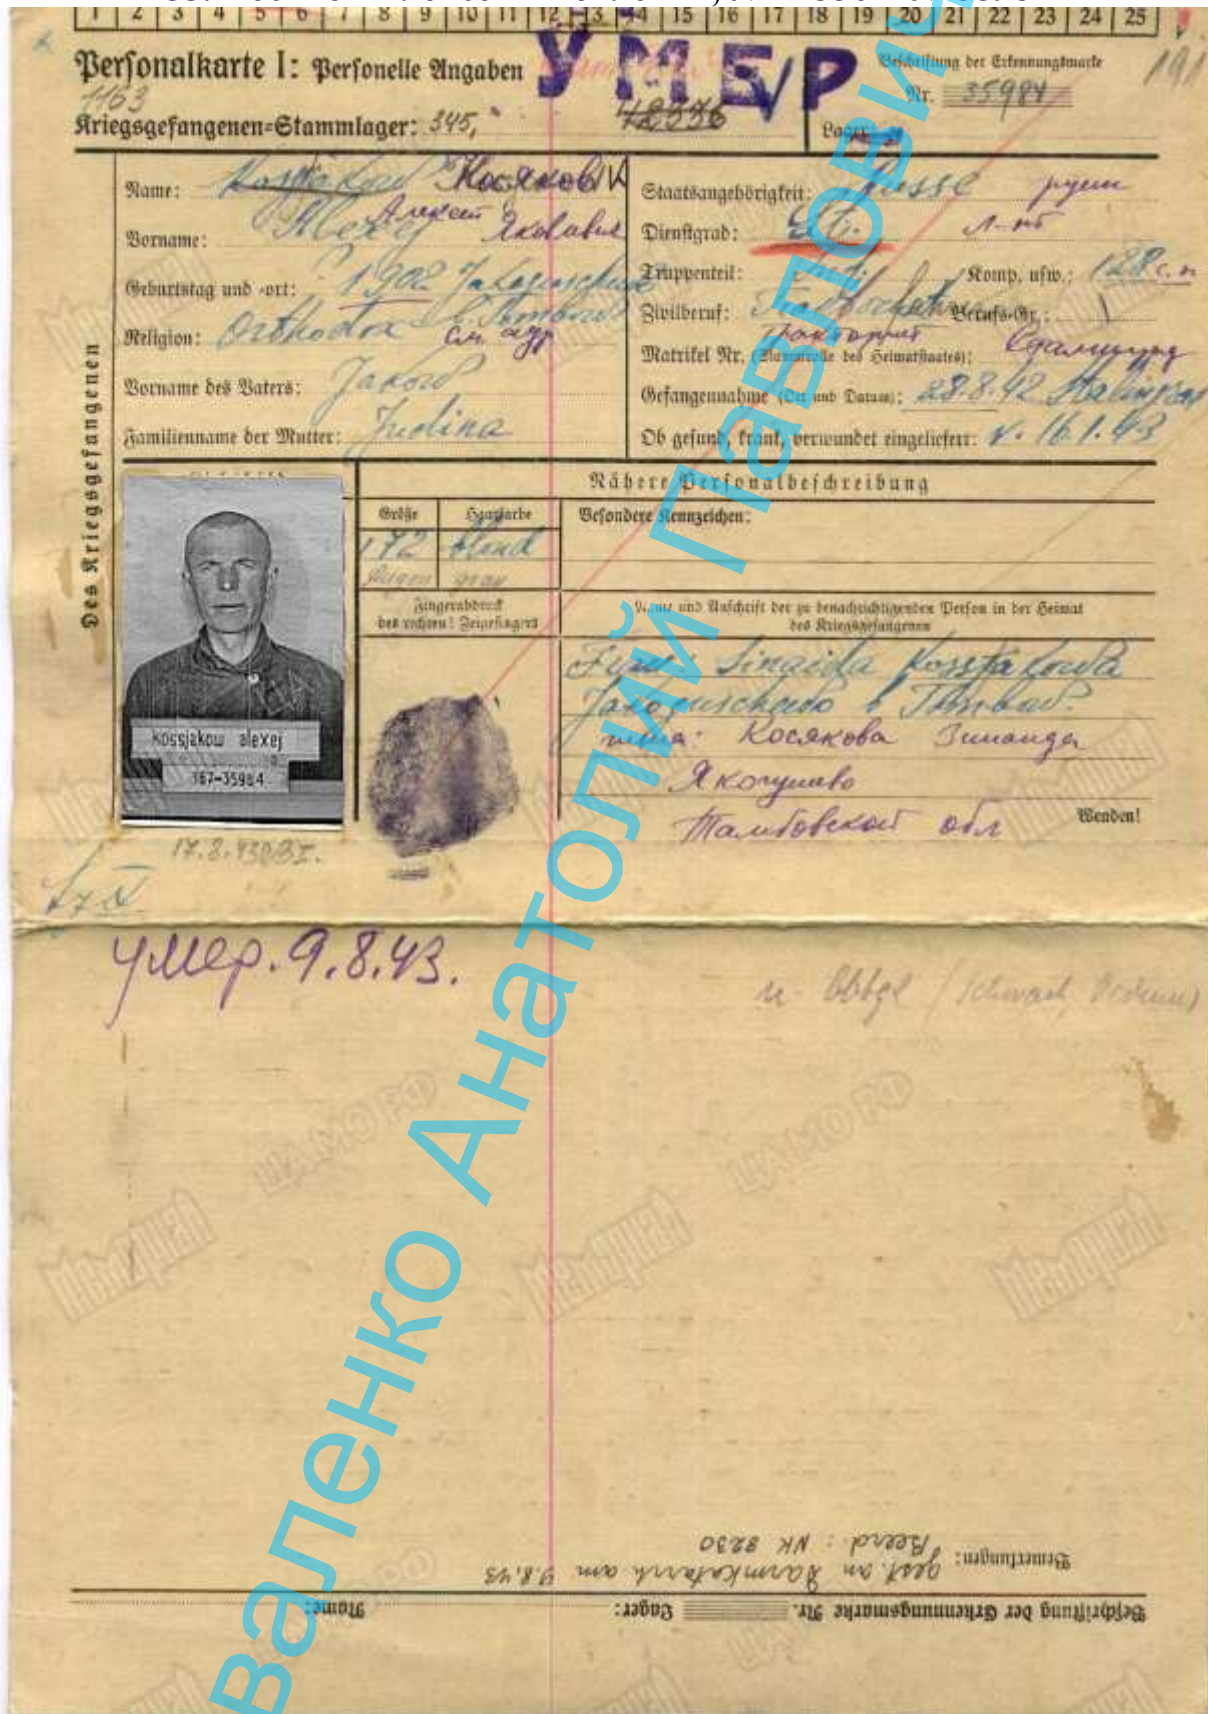 1 2 3 4 5 6 7 8 9 10 11 12 13 14 15 16 17 18 19 20 21 22 23 24 25
Personalkarte I: Personelle Angaben
УМЕР
Beschriftung der Erkennungsmarke
191
Nr. 35984
1163
Kriegsgefangenen=Stammlager: 345,
Lager:
Des Kriegsgefangenen
Name: Kossjakow Косяков
Vorname: Alexej Алексей Яковлевич
Geburtstag und =ort: ? 1902
Religion: Orthodox См. адр
Vorname des Vaters: Jakow
Familienname der Mutter: Judina
Staatsangehörigkeit: Russe русск
Dienstgrad: Lt. л-нт
Truppenteil: Inf. Komp. usw.: 128 с.п
Zivilberuf: Berufs=Gr.: 1
Matrikel Nr. (Stammrolle des Heimatstaates):
Gefangennahme (Ort und Datum): 28.8.42 Stalingrad
Ob gesund, krank, verwundet eingeliefert: v. 16.1.43
Nähere Personalbeschreibung
Größe Haarfarbe Besondere Kennzeichen:
172 blond
Augen grau
Fingerabdruck
des rechten! Zeigefingers
Name und Anschrift der zu benachrichtigenden Person in der Heimat
des Kriegsgefangenen
Frau: Sinaida Kossjakowa
жена: Косякова Зинаида
Тамбовской обл
Wenden!
Kossjakow alexej
367-35984
17.2.43
умер. 9.8.43.
Bemerkungen: gest. an Darmkatarrh am 9.8.43
Beerd.: NK 8230
Beschriftung der Erkennungsmarke Nr. Lager: Name:
Мемориал
ЦАМО РФ
Валенко Анатолий Павлович